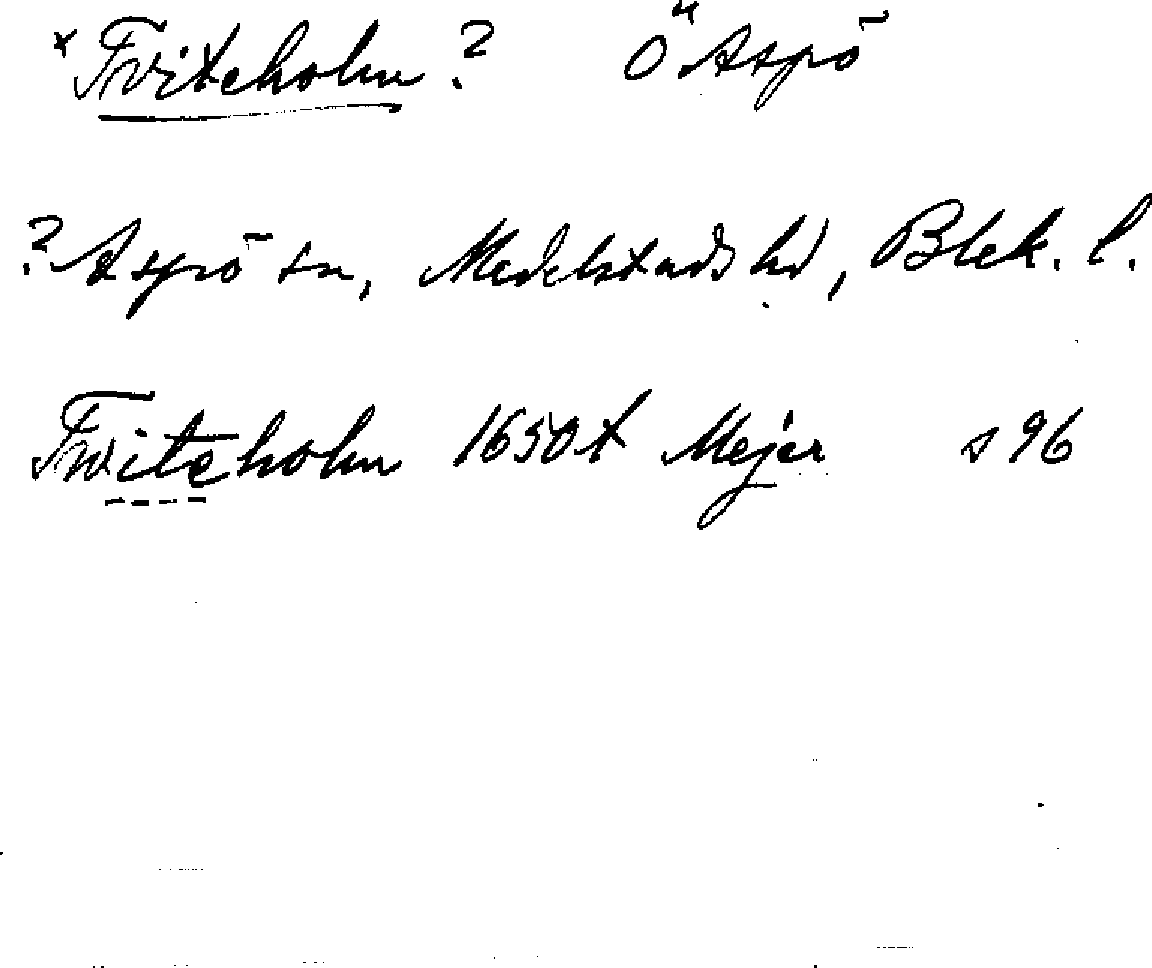 x Tviteholm ? Ö Aspö
? Aspö sn, Medelstads hd, Blek. l.
Twiteholm 1650 t Mejer s 96